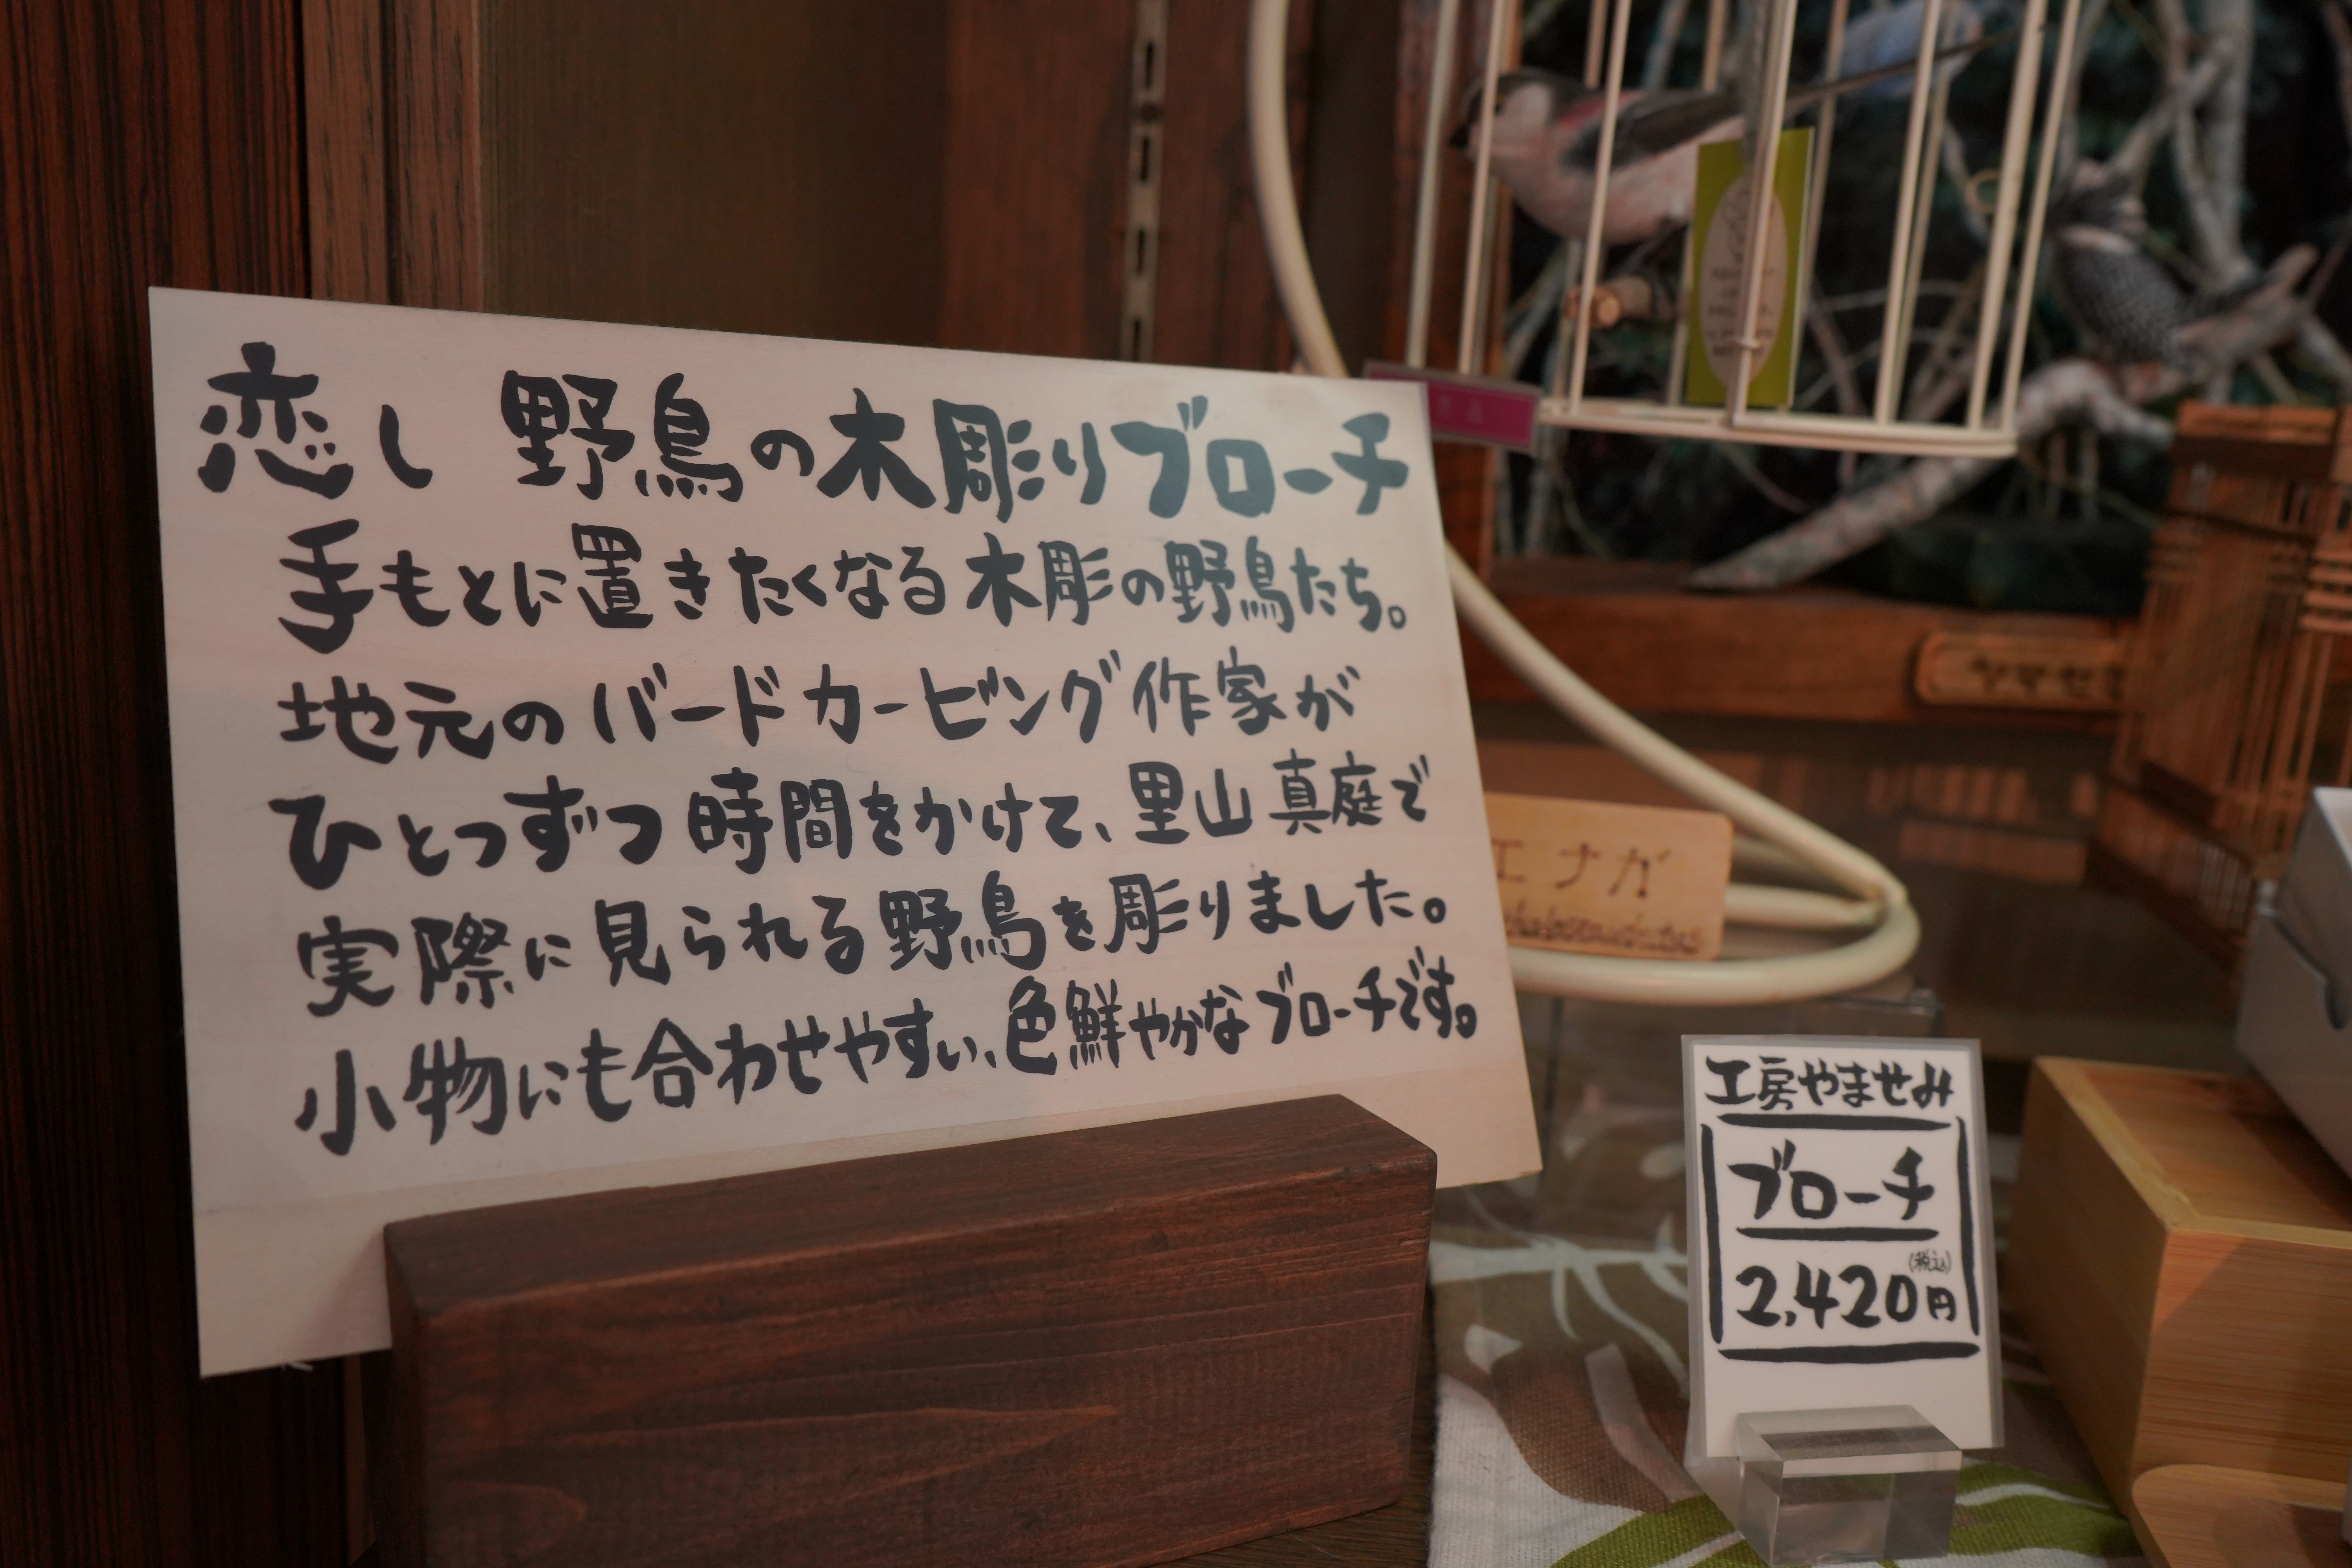 恋し 野鳥の木彫りブローチ
手もとに置きたくなる木彫の野鳥たち。
地元のバードカービング作家が
ひとつずつ時間をかけて、里山真庭で
実際に見られる野鳥を彫りました。
小物にも合わせやすい、色鮮やかなブローチです。
エナガ
ヤマセ
工房やませみ
ブローチ
(税込)
2,420円